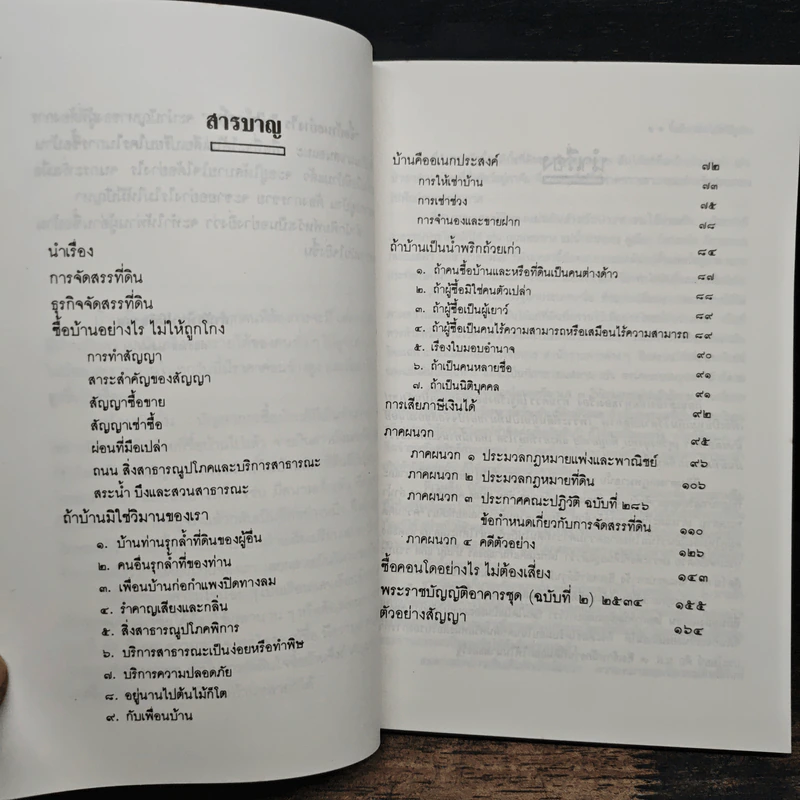 สารบาญ
นำเรื่อง
การจัดสรรที่ดิน
ธุรกิจจัดสรรที่ดิน
ซื้อบ้านอย่างไร ไม่ให้ถูกโกง
การทำสัญญา
สาระสำคัญของสัญญา
สัญญาซื้อขาย
สัญญาเช่าซื้อ
ผ่อนที่มือเปล่า
ถนน สิ่งสาธารณูปโภคและบริการสาธารณะ
สระน้ำ บึงและสวนสาธารณะ
ถ้าบ้านมิใช่วิมานของเรา
๑. บ้านท่านรุกล้ำที่ดินของผู้อื่น
๒. คนอื่นรุกล้ำที่ของท่าน
๓. เพื่อนบ้านก่อกำแพงปิดทางลม
๔. รำคาญเสียงและกลิ่น
๕. สิ่งสาธารณูปโภคพิการ
๖. บริการสาธารณะเป็นง่อยหรือทำพิษ
๗. บริการความปลอดภัย
๘. อยู่นานไปต้นไม้ก็โต
๙. กับเพื่อนบ้าน
บ้านคืออเนกประสงค์ ๗๒
การให้เช่าบ้าน ๗๓
การเช่าช่วง ๗๕
การจำนองและขายฝาก ๗๘
ถ้าบ้านเป็นน้ำพริกถ้วยเก่า ๘๔
๑. ถ้าคนซื้อบ้านและหรือที่ดินเป็นคนต่างด้าว ๘๗
๒. ถ้าผู้ซื้อมิใช่คนตัวเปล่า ๘๘
๓. ถ้าผู้ซื้อเป็นผู้เยาว์ ๘๙
๔. ถ้าผู้ซื้อเป็นคนไร้ความสามารถหรือเสมือนไร้ความสามารถ ๘๙
๕. เรื่องใบมอบอำนาจ ๙๐
๖. ถ้าเป็นคนหลายชื่อ ๙๑
๗. ถ้าเป็นนิติบุคคล ๙๑
การเสียภาษีเงินได้ ๙๒
ภาคผนวก ๙๕
ภาคผนวก ๑ ประมวลกฎหมายแพ่งและพาณิชย์ ๙๖
ภาคผนวก ๒ ประมวลกฎหมายที่ดิน ๑๐๖
ภาคผนวก ๓ ประกาศคณะปฏิวัติ ฉบับที่ ๒๘๖
ข้อกำหนดเกี่ยวกับการจัดสรรที่ดิน ๑๑๐
ภาคผนวก ๔ คดีตัวอย่าง ๑๒๖
ซื้อคอนโดอย่างไร ไม่ต้องเสี่ยง ๑๔๓
พระราชบัญญัติอาคารชุด (ฉบับที่ ๒) ๒๕๓๔ ๑๕๕
ตัวอย่างสัญญา ๑๖๔